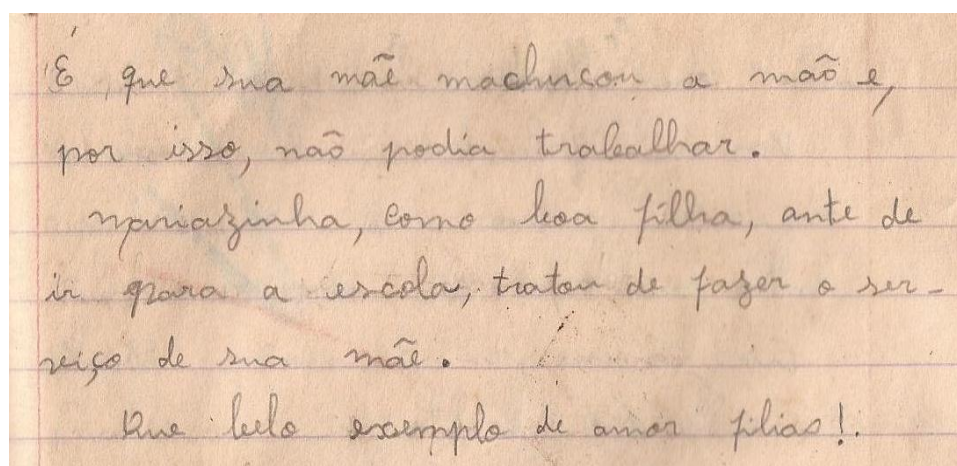 É que sua mãe machucou a mão e,
por isso, não podia trabalhar.
Mariazinha, como boa filha, ante de
ir para a escola, tratou de fazer o ser-
viço de sua mãe.
Que belo exemplo de amor filias!.